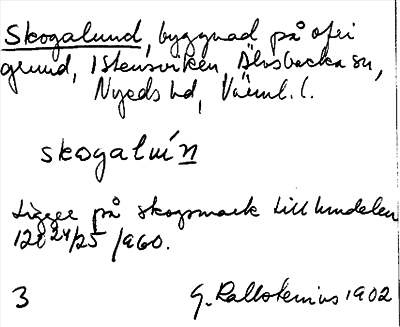 Skogalund, byggnad på ofri
grund, i Stensviken, Älvsbacka sn,
Nyeds hd, Värml. l.
skogalún
Ligger på skogsmark tillhundelen
120 24/25 1960.
3 G. Kallstenius 1902